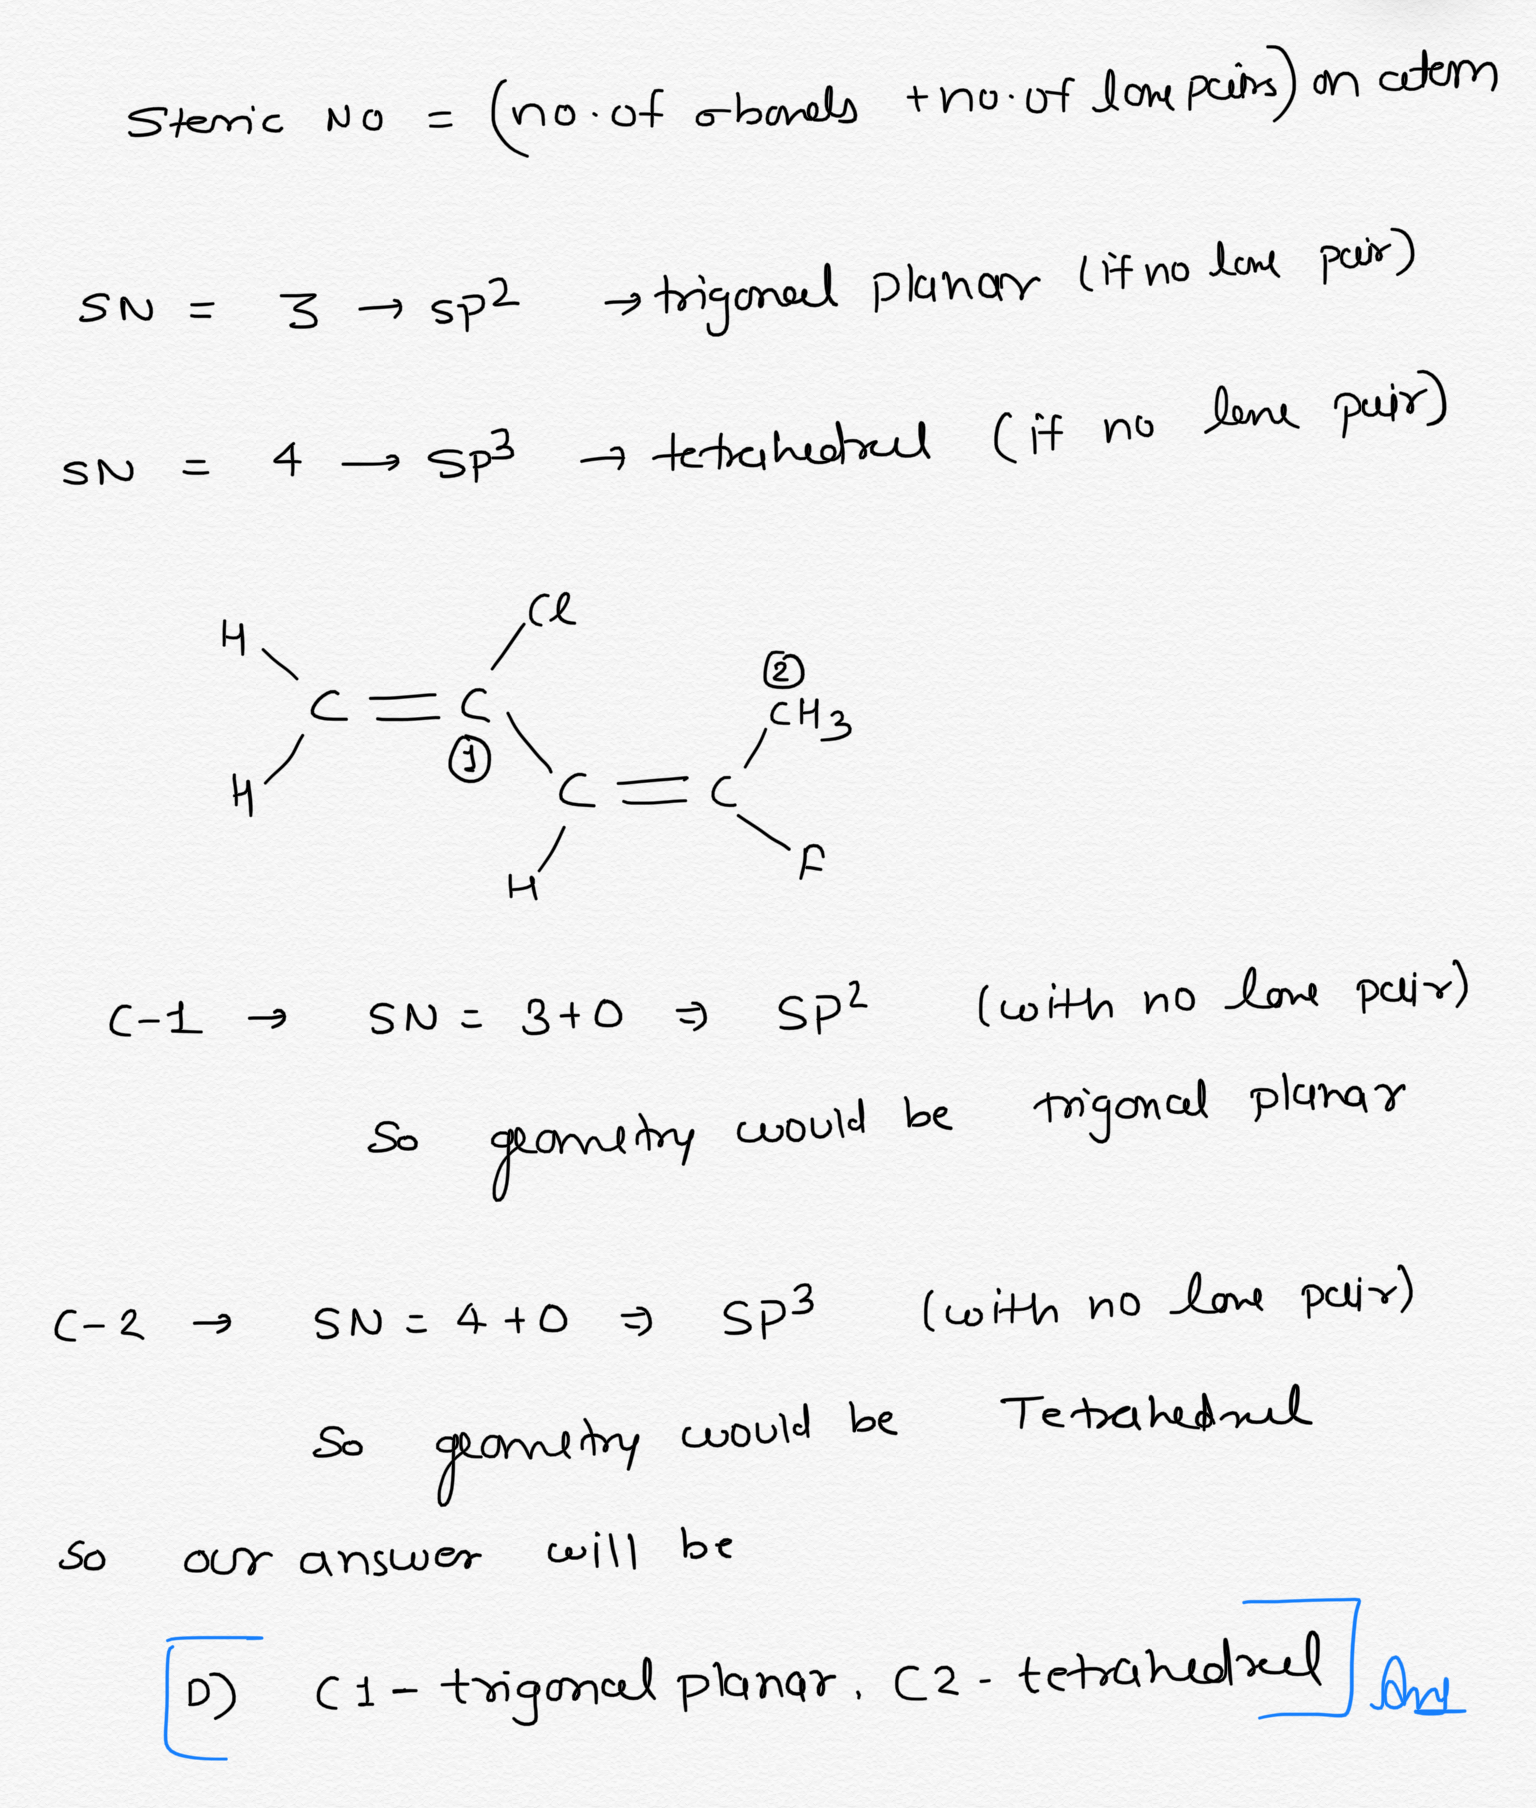 Steric NO = (no. of σ bonds + no. of lone pairs) on atom
SN = 3 → sp² → trigonal planar (if no lone pair)
SN = 4 → sp³ → tetrahedral (if no lone pair)
Cl
H
②
C = C
CH3
①
H
C = C
H
F
C-1 → SN = 3+0 ⇒ SP² (with no lone pair)
so geometry would be trigonal planar
C-2 → SN = 4+0 ⇒ SP³ (with no lone pair)
so geometry would be Tetrahedral
so our answer will be
D) C1 - trigonal planar, C2 - tetrahedral Ans